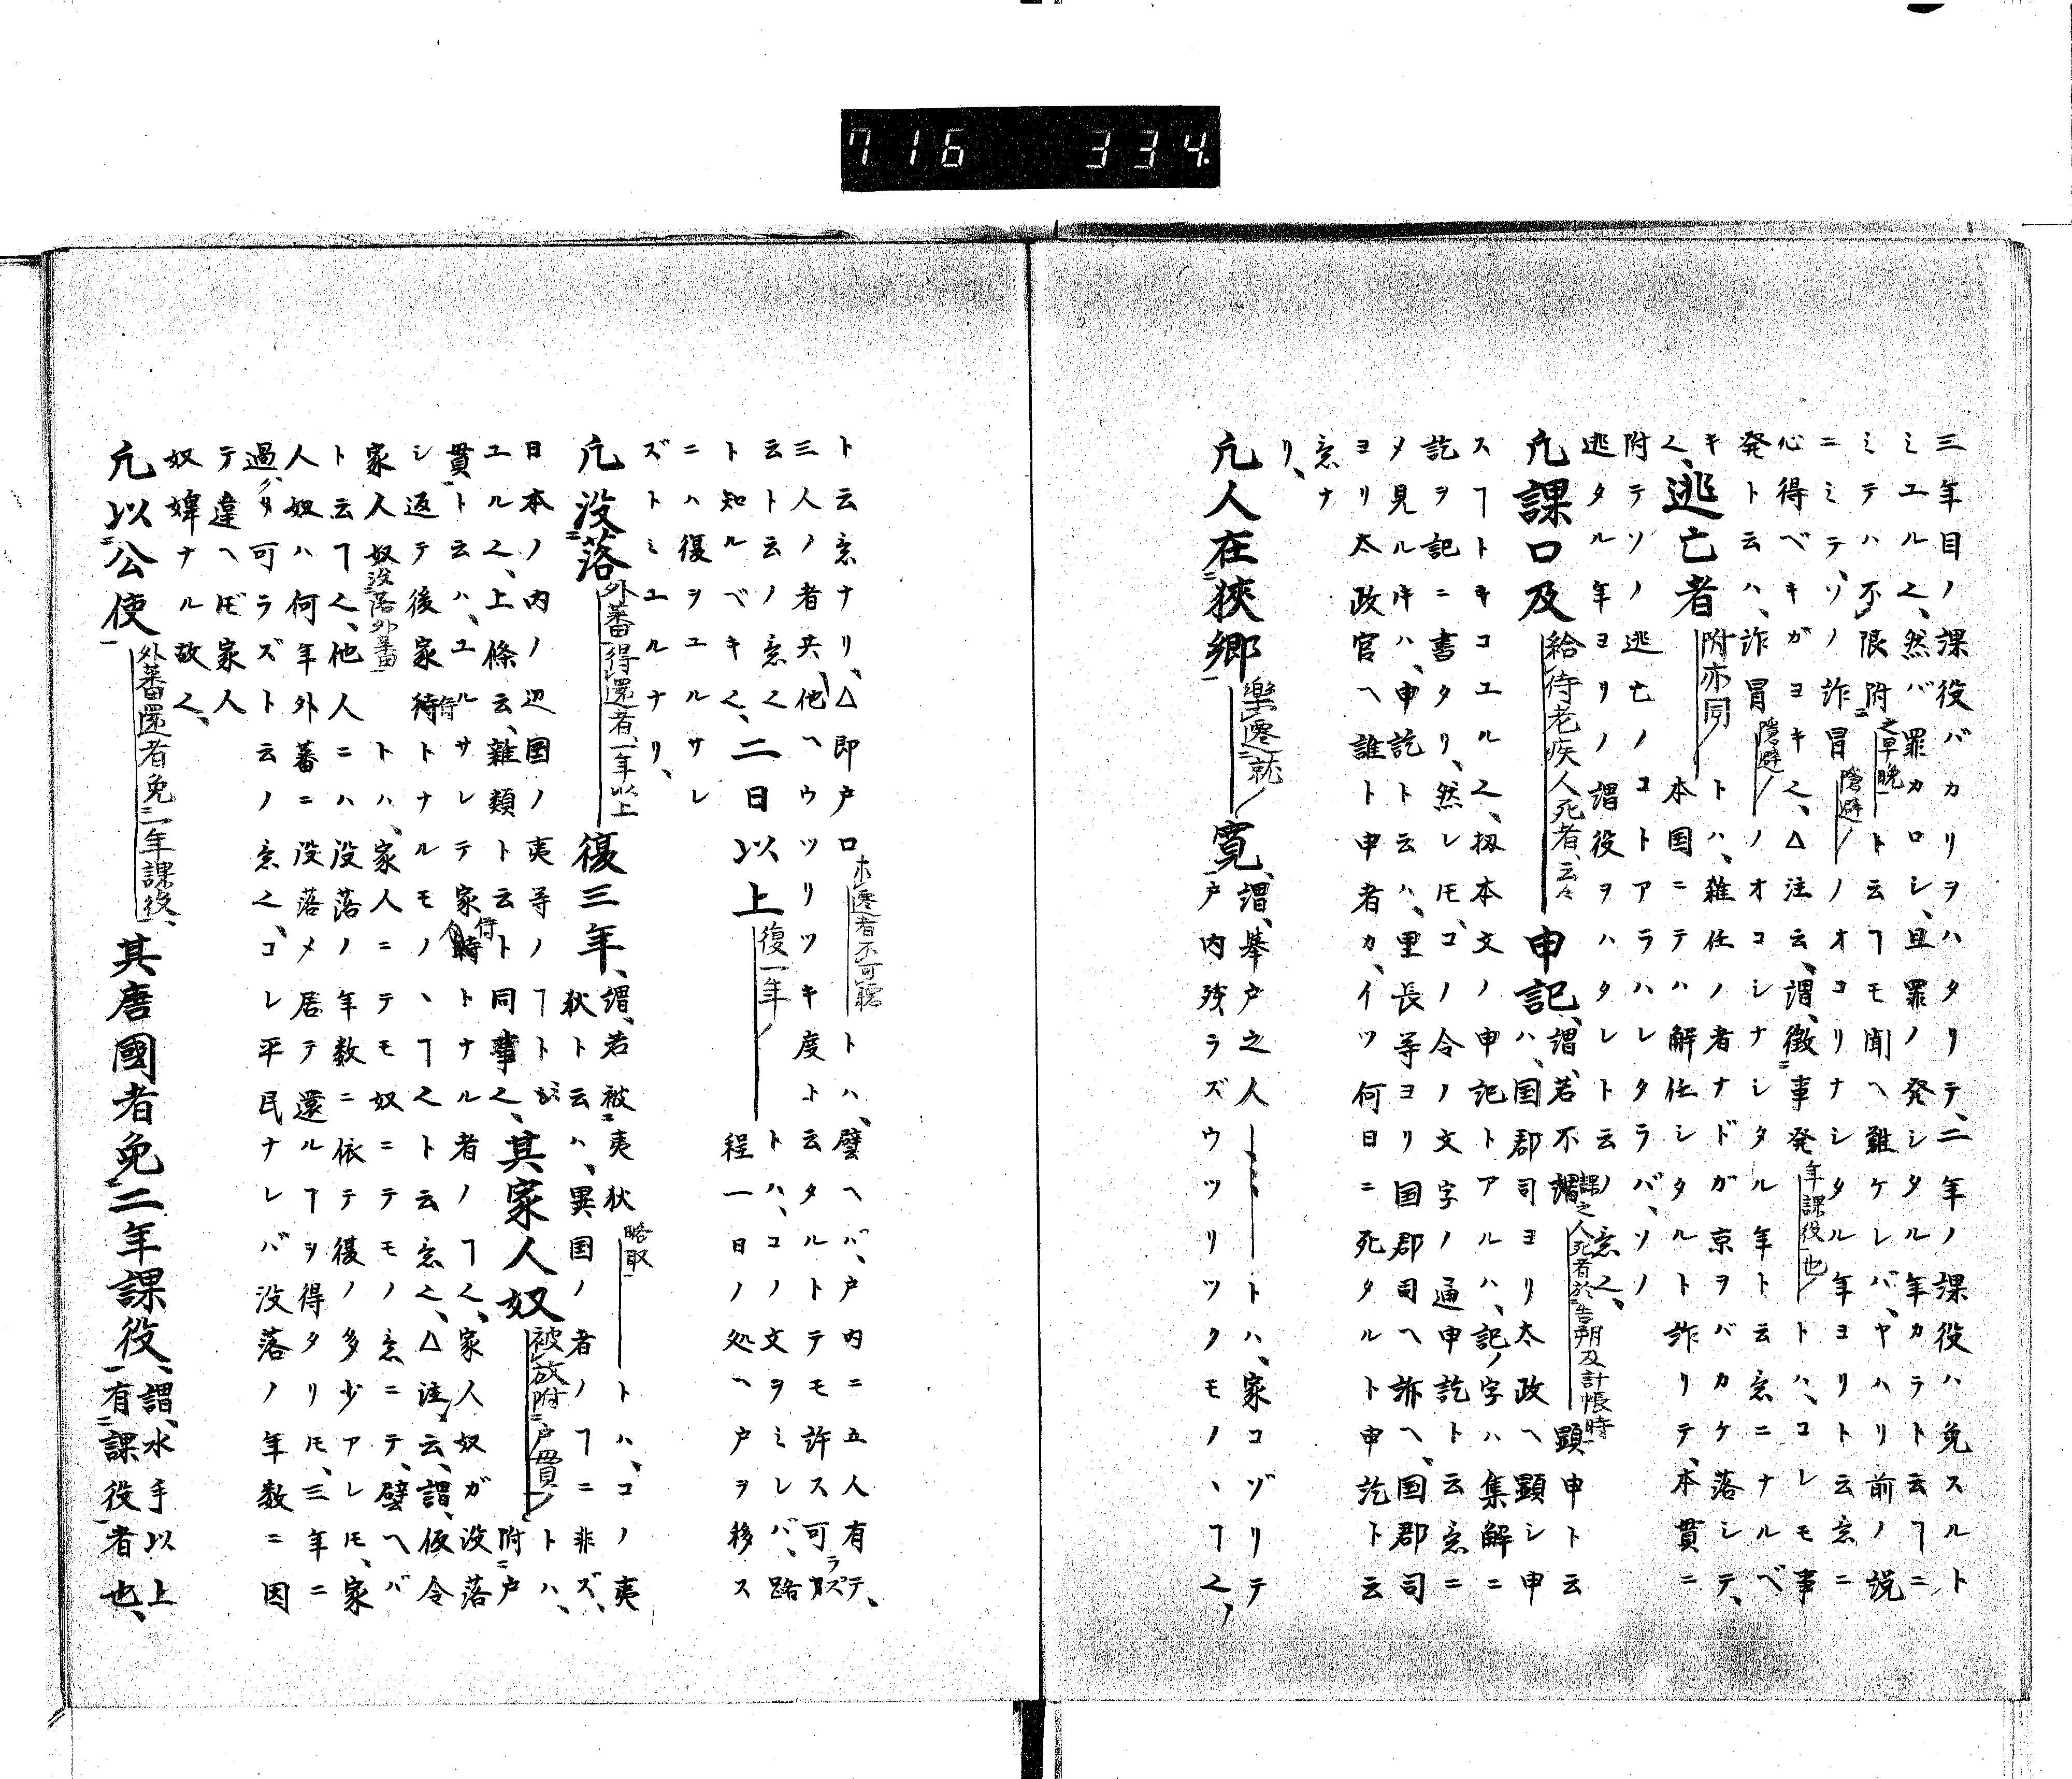 716 334
三年目ノ課役バカリヲハタリテ、二年ノ課役ハ免スルト
ミユル之、然バ罪カロシ、且罪ノ発シタル年カラト云ヿニ
ミテハ不限附之早晩トモ云ヿモ聞ヘ難ケレバ、ヤハリ前ノ説
ニミテ、ソノ詐冒隠避ノオコリナシタル年ヨリト云意ニ
心得ベキガヨキ之、△注云、謂、徴事発年課役也トハ、コレモ事
発ト云ハ、詐冒隠避ノオコシナシタル年ト云意ニナルベ
キ之、逃亡者附亦同トハ、雑任ノ者ナドガ京ヲバカケ落シテ、
本国ニテハ解任シタルト詐リテ、本貫ニ
附テソノ逃亡ノコトアラハレタラバ、ソノ
逃タル年ヨリノ謂役ヲハタレト云ノ意之、
凢課口及給侍老疾人死者、云々申記、謂、若不課之人死者於告朔及計帳時顕申ト云
ハ、国郡司ヨリ太政ヘ顕シ申
スヿトキコユル之、扨本文ノ申記トアルハ、記ノ字ハ集解ニ
訖ヲ記ニ書タリ、然レモ、コノ令ノ文字ノ通申訖ト云意ニ
タ見ルキハ、申訖ト云ハ、里長等ヨリ国郡司ヘ訴ヘ、国郡司
ヨリ太政官ヘ誰ト申者カ、イツ何日ニ死タルト申訖ト云
意ナ
リ、
凢人在狹郷樂遷就寛、謂、挙戸之人トハ、家コゾリテ
戸内残ラズウツリツクモノヽヿ之、
ト云意ナリ、△即戸口未遷者不可聽トハ、譬ヘバ、戸内ニ五人有テ、
三人ノ者共、他ヘウツリツキ度ト云タルトテモ許ス可ラズ
云ト云ノ意之、二日以上復一年トハ、コノ文ヲミレバ、路
ト知ルベキ之、程一日ノ処ヘ戸ヲ移ス
ニハ復ヲユルサレ
ズトミユルナリ、
凢没落外蕃得還者、一年以上復三年、謂、若被夷狄略取トハ、コノ夷
狄ト云ハ、異国ノ者ノヿニ非ズ、
日本ノ内ノ辺国ノ夷等ノヿトゾ、其家人奴被放附戸貫トハ、
ユル之、上條云、雜類ト云ト同事之、附戸
貫ト云ハ、ユルサレテ家侍人トナル者ノヿ之、家人奴ガ没落
シ返テ後家侍トナルモノヽヿ之ト云意之、△注云、謂、仮令
家人奴没落外蕃トハ、家人ニテモ奴ニテモノ意ニテ、譬ヘバ
ト云ヿ之、他人ニハ没落ノ年数ニ依テ復ノ多少アレモ、家
人奴ハ何年外蕃ニ没落メ居テ還ルヿヲ得タリモ、三年ニ
過ハタ可ラズト云ノ意之、コレ平民ナレバ没落ノ年数ニ因
テ違ヘモ家人
奴婢ナル故之、
凢以公使外蕃還者免一年課役、其唐國者免二年課役、謂、水手以上
有課役者也、